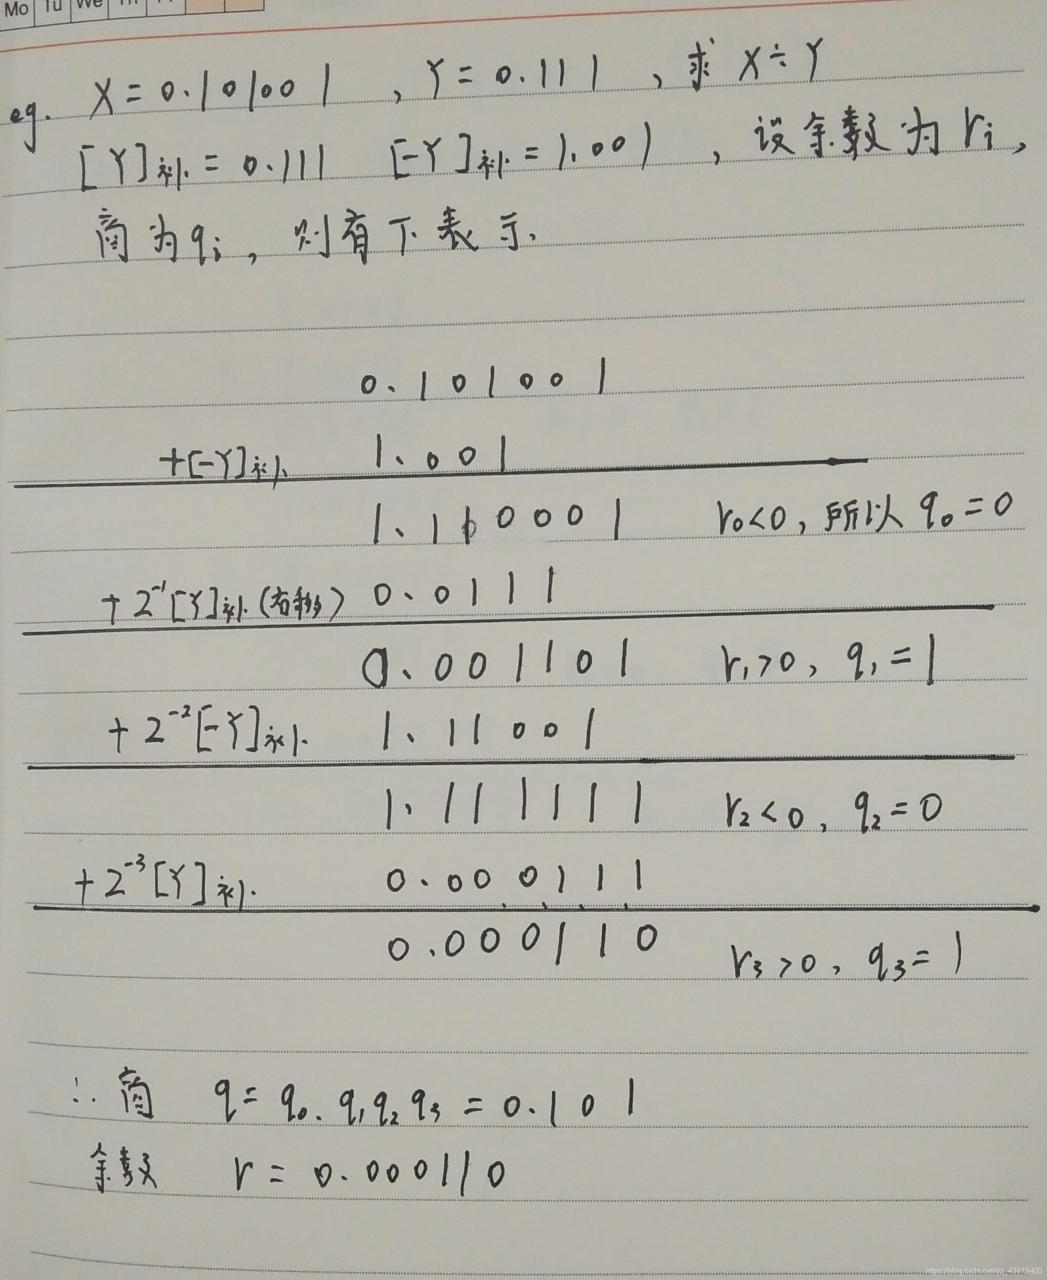 Mo Tu We
eg. X = 0.101001 , Y = 0.111 , 求 X÷Y
[Y]补 = 0.111 [-Y]补 = 1.001 , 设余数为 ri ,
商为 qi , 则有下表示.
0.101001
+[-Y]补 1.001
1.110001 r0<0, 所以 q0=0
+ 2⁻¹[Y]补 (右移) 0.0111
0.001101 r1>0, q1=1
+ 2⁻²[-Y]补 1.11001
1.111111 r2<0, q2=0
+ 2⁻³[Y]补 0.000111
0.000110 r3>0, q3=1
∴ 商 q = q0.q1q2q3 = 0.101
余数 r = 0.000110